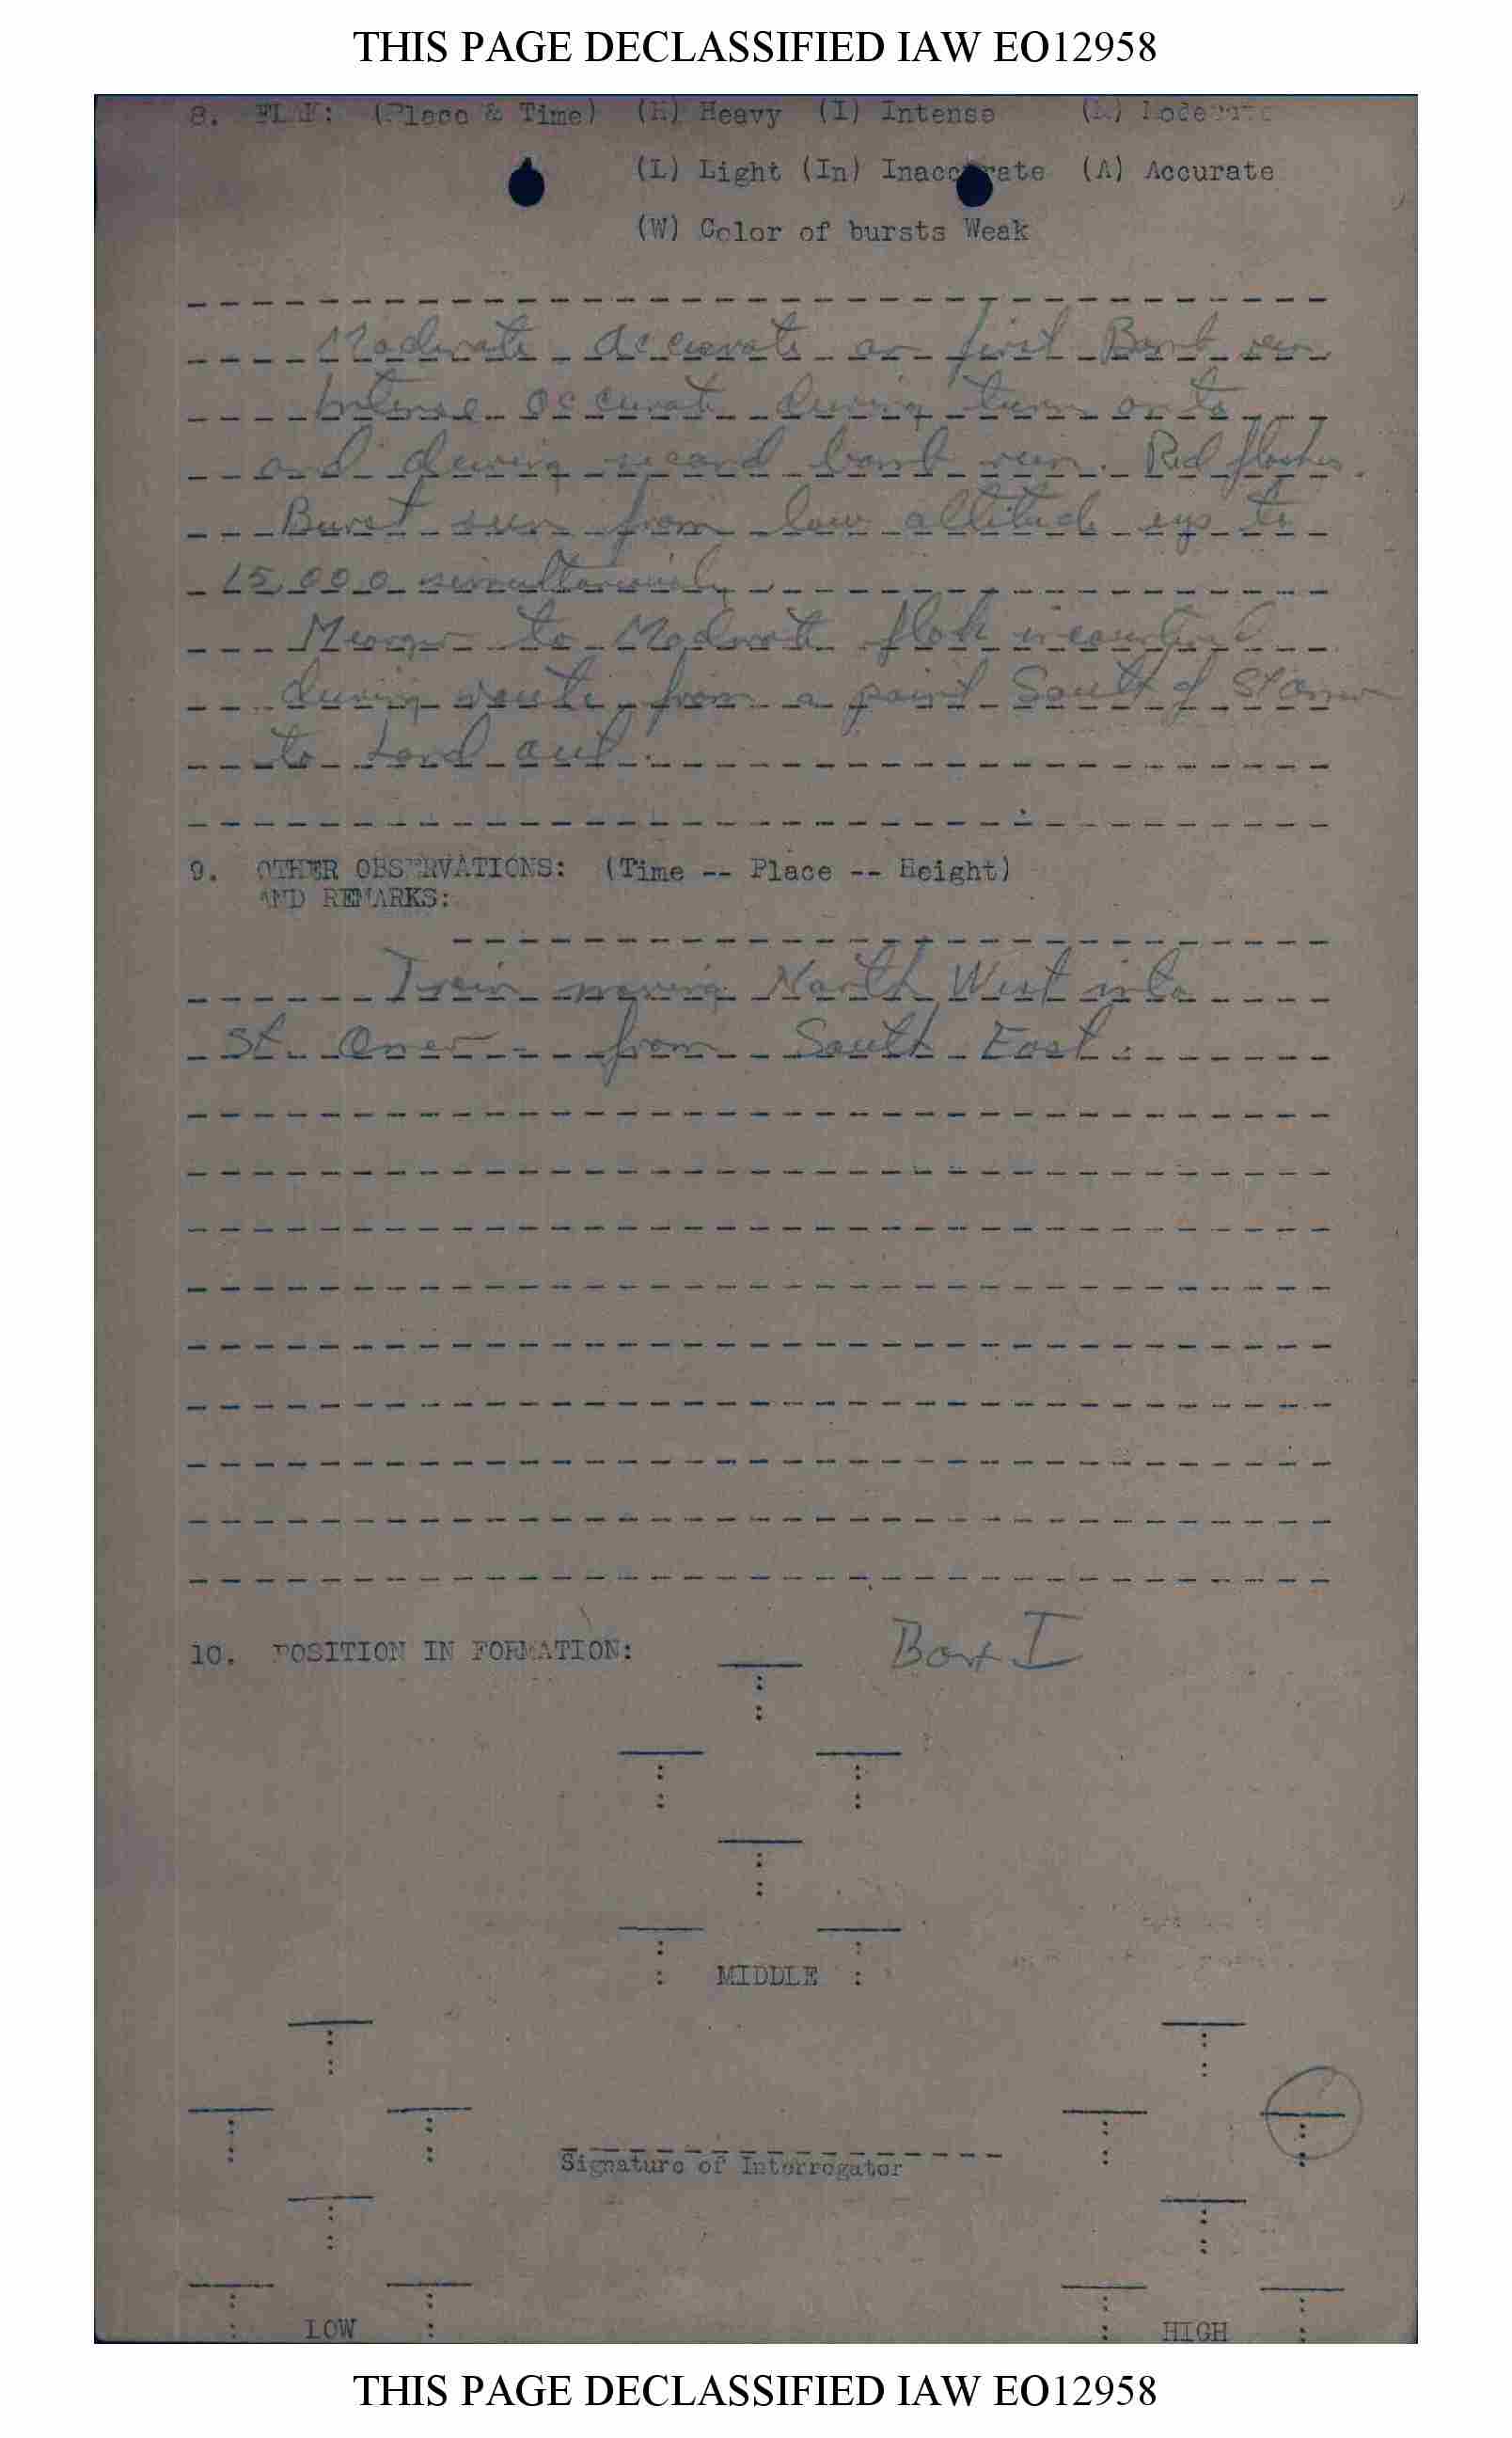 THIS PAGE DECLASSIFIED IAW EO12958
8. FLAK: (Place & Time) (H) Heavy (I) Intense (M) Moderate
(L) Light (In) Inaccurate (A) Accurate
(W) Color of bursts Weak
Moderate accurate on first Bomb run
Intense accurate during turn onto
and during second bomb run. Red flashes.
Burst seen from low altitude up to
15,000 simultaneously
Meager to Moderate flak
during route from a point South of St Omer
to Land out.
9. OTHER OBSERVATIONS: (Time -- Place -- Height)
AND REMARKS:
Train moving North West into
St. Omer from South East.
10. POSITION IN FORMATION: Box I
MIDDLE
Signature of Interrogator
LOW HIGH
THIS PAGE DECLASSIFIED IAW EO12958